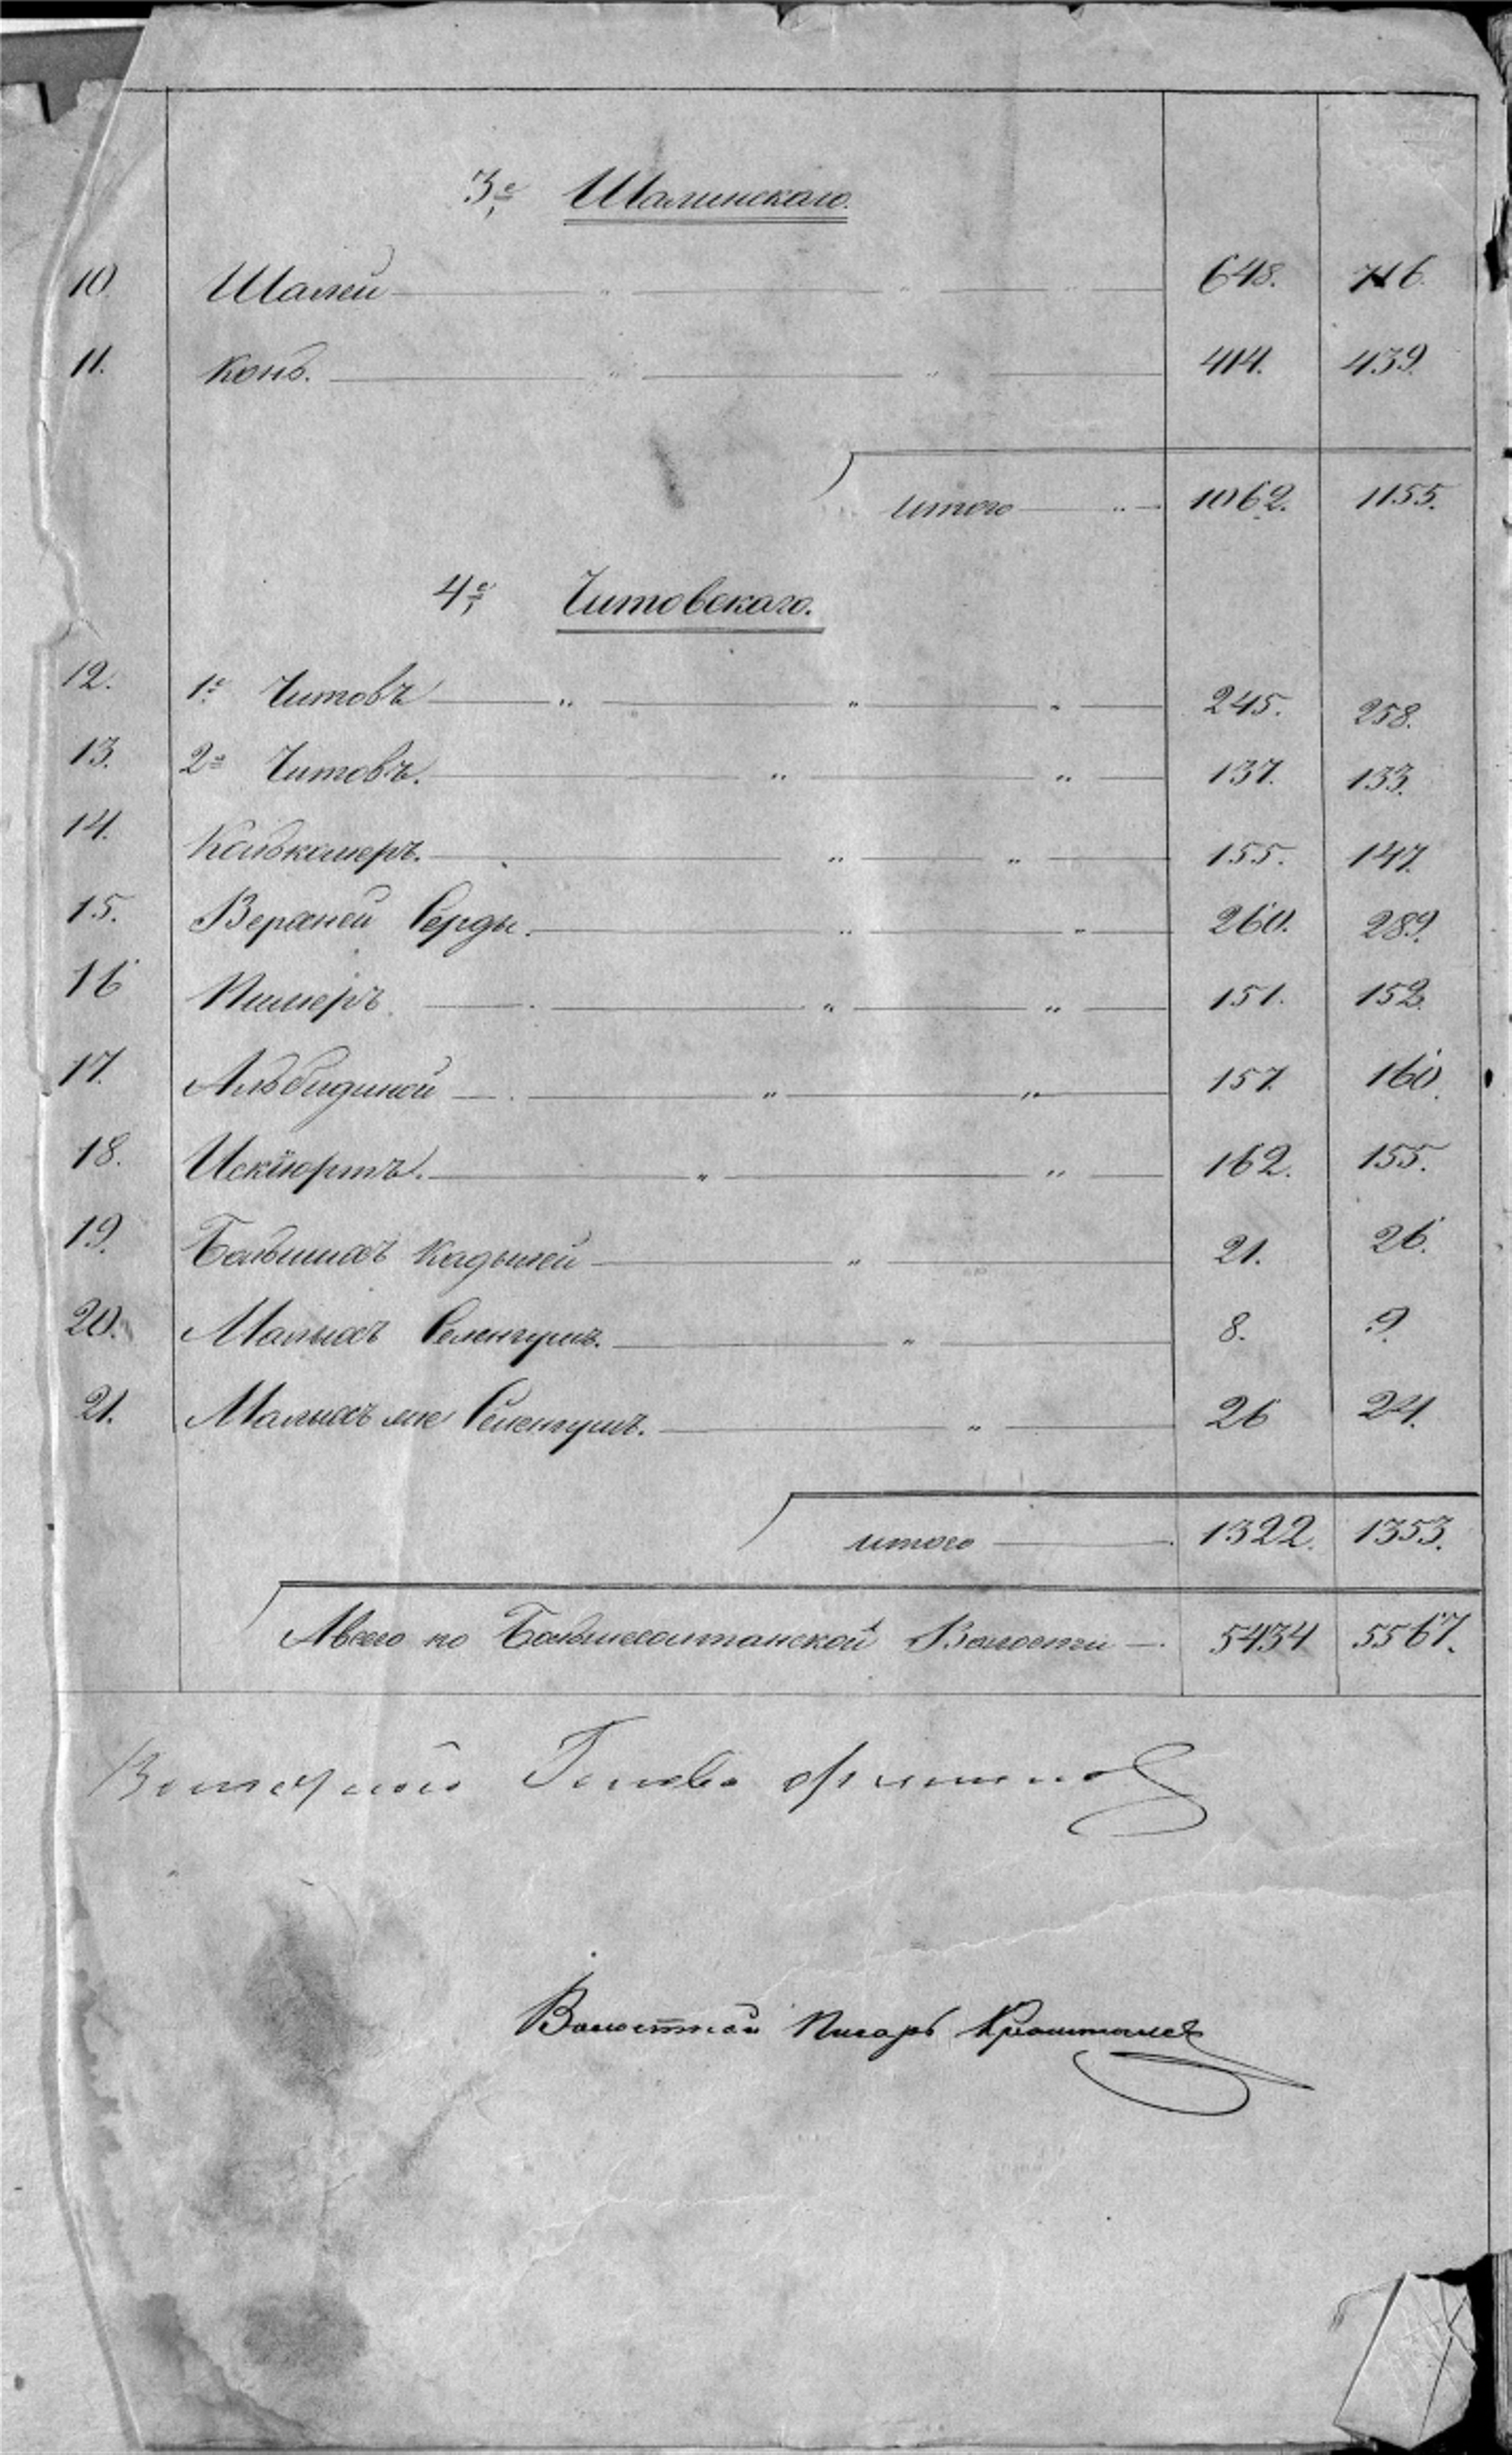 3е, Шалинскаго.
10. Шалей 648. 716.
11. Конь. 414. 439.
итого 1062. 1155.
4е, Читовскаго.
12. 1е Читовъ 245. 258.
13. 2е Читовъ. 137. 133.
14. 155. 147.
15. Верхней Серды. 260. 289.
16 Пимеръ. 151. 152.
17. Альбидиной 157. 160.
18. Искiюртъ. 162. 155.
19. Большихъ Кадылей 21. 26.
20. Малыхъ Селенгушъ. 8. 9.
21. Малыхъ же Селенгушъ. 26 24.
итого 1322. 1353.
Авсего по Волости 5434 5567.
Голова
Волостной Писарь